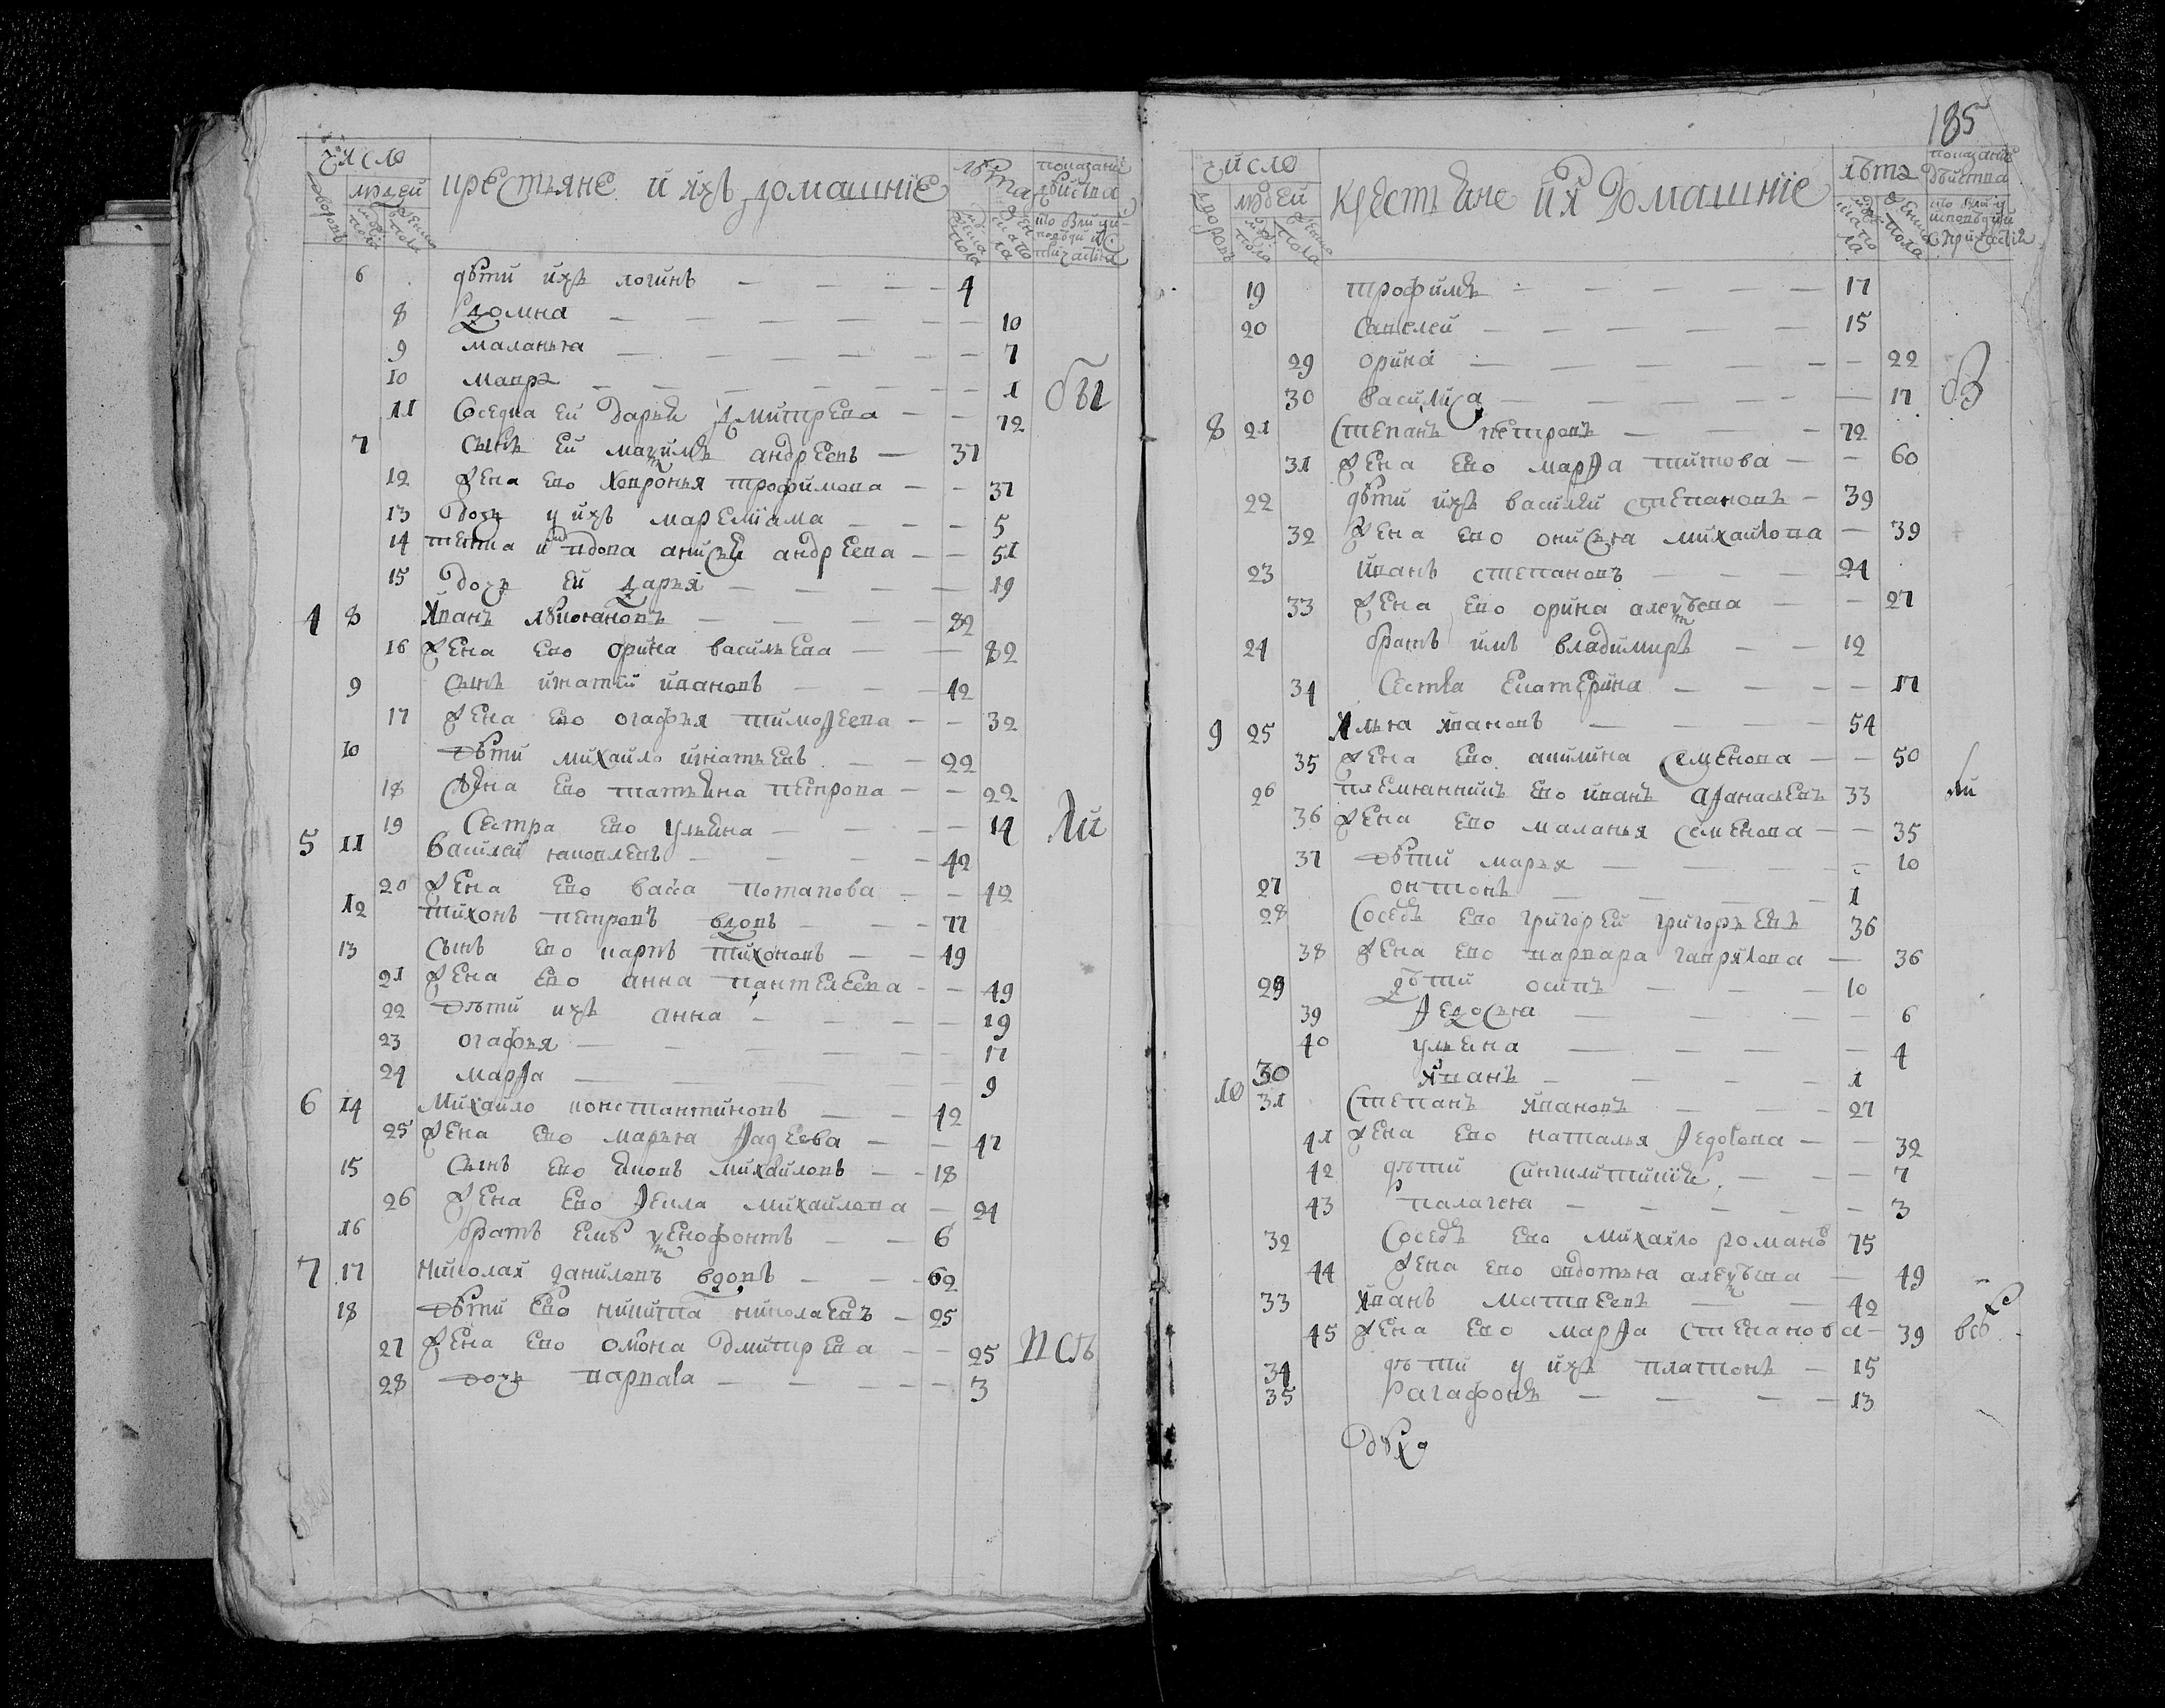 число
людей
крестьяне и ихъ домашние
лѣта
показание действа
кто был у исповѣди и с. причастия
дворовъ
мужеска полу
женска пола
6 дѣти ихъ логинъ 4
8 домна 10
9 маланья 7
10 мавра 1 бы
11 соседка ей дарья дмитрева 72
7 сынъ ей маѯимъ андреевъ 37
12 жена ево хавронья трофимова 37
13 дочь у ихъ маремиама 5
14 тетка и вдова анисья андреева 51
15 дочь ей дарья 19
4 8 иванъ 82
16 жена ево орина васильева 82
9 сынъ игнатей ивановъ 42
17 жена ево огафья тимоѳеева 32
10 дѣти михайло игнатьевъ 22
18 жена ево татьяна петрова 22
19 сестра ево ульяна 14 ли
5 11 василей яковлевъ 42
20 жена ево васса потапова 42
12 тихонъ петровъ вдовъ 77
13 сынъ ево карпъ тихоновъ 49
21 жена ево анна пантелеева 49
22 дѣти ихъ анна 19
23 огафья 17
24 марѳа 9
6 14 михайло константиновъ 42
25 жена ево марья ѳадеева 47
15 сынъ ево яковъ михайловъ 18
26 жена ево ѳекла михайлова 24
16 братъ емѹ ѯенофонтъ 6
7 17 николай даниловъ вдовъ 62
18 дѣти ево никита николаевъ 25
27 жена ево дмитрева 25 псѣ
28 дочь варвара 3
185
число
людей
крестьяне их домашние
лѣта
показание дѣйства
кто был у исповѣди и с причастия
дворовъ
мужеска пола
женска пола
19 трофимъ 17
20 савелей 15
29 орина 22
30 василиса 17 в
8 21 степанъ петровъ 72
31 жена ево марѳа титова 60
22 дѣти ихъ василей степановъ 39
32 жена ево онисья михайлова 39
23 иванъ степановъ 24
33 жена ево орина алеѯѣева 27
24 братъ имъ владимиръ 12
34 сестра екатерина 17
9 25 илья ивановъ 54
35 жена ево акилина семенова 50
26 племянникъ ево иванъ аѳанасьевъ 33 ли
36 жена ево маланья семенова 35
37 дѣти марья 10
27 онтонъ 1
28 соседъ ево григорей григорьевъ 36
38 жена ево варвара гаврилова 36
29 дѣти осипъ 10
39 ѳедосья 6
40 ульяна 4
30 иванъ 1
10 31 степанъ ивановъ 27
41 жена ево наталья ѳедорова 32
42 дѣти 7
43 палагея 3
32 соседъ ево михайло романо 75
44 жена ево овдотья алеѯѣева 49
33 иванъ матвеевъ 42
45 жена ево марѳа степанова 39 всѣ
34 дѣти у ихъ платонъ 15
35 агафонъ 13